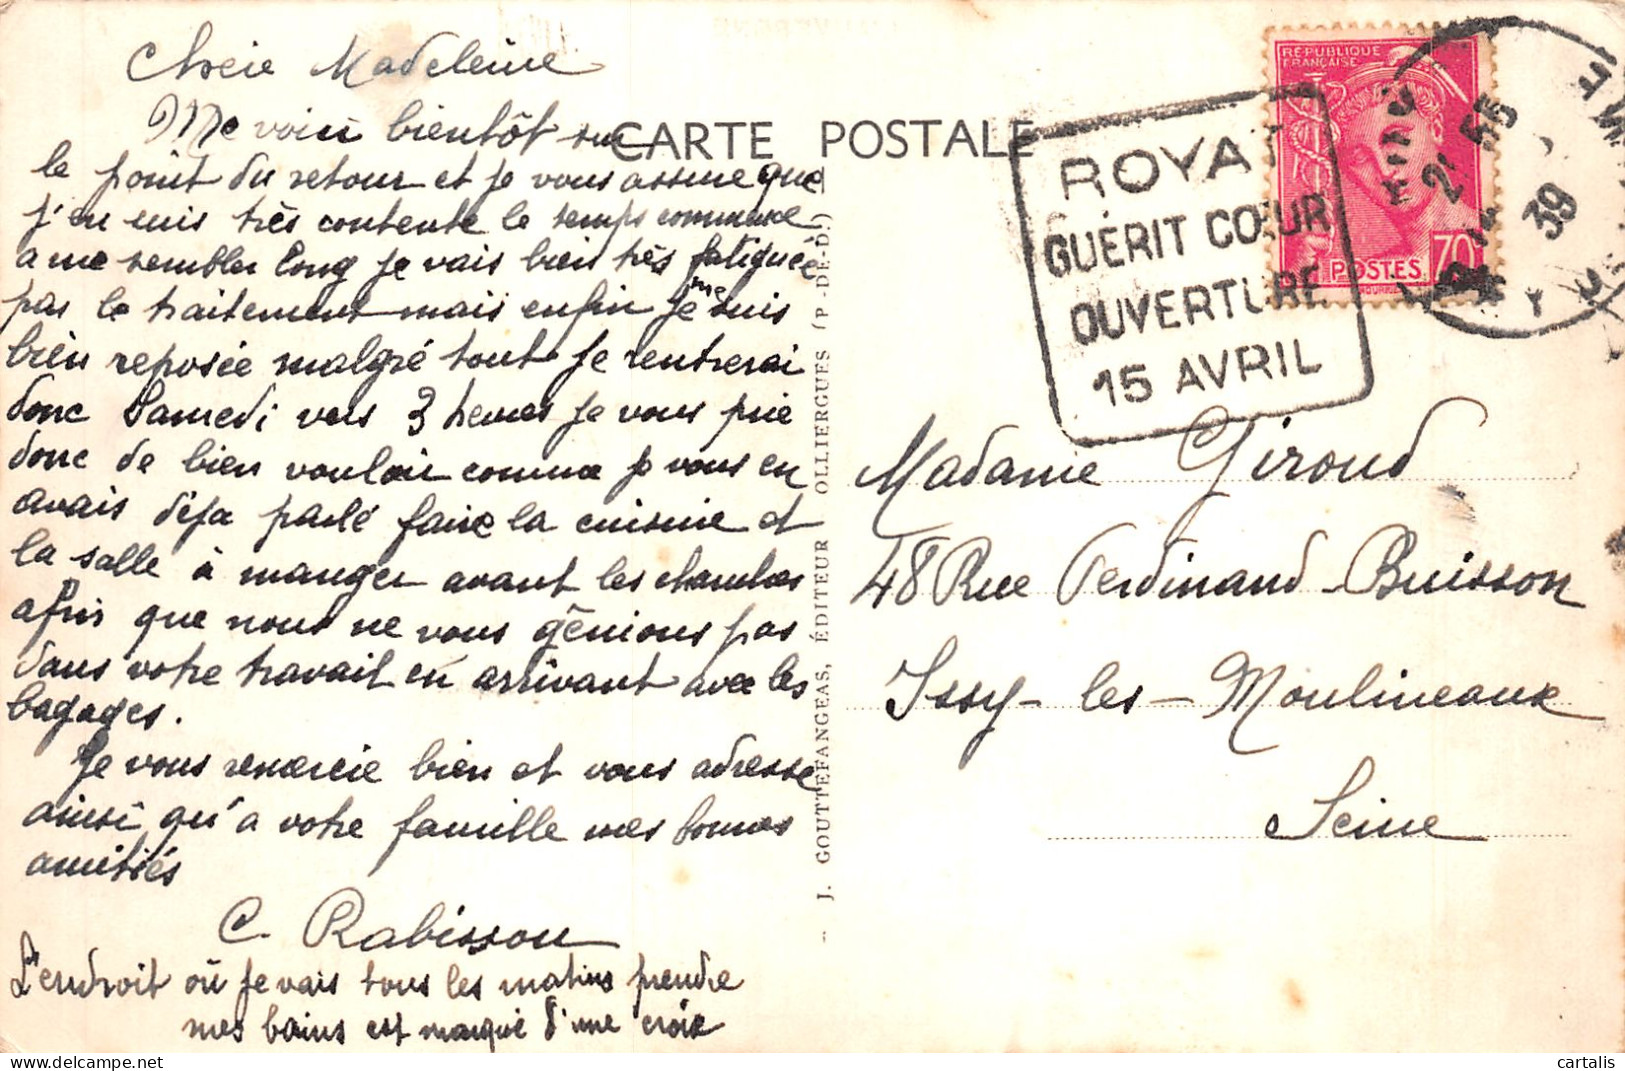 Chère Madeleine
Me voici bientôt sur
le point du retour et je vous assure que
j'en suis très contente le temps commence
a me sembler long je vais bien très fatiguée
par le traitement mais enfin je me suis
bien reposée malgré tout je rentrerai
donc Samedi vers 3 heures je vous prie
donc de bien vouloir comme je vous en
avais déja parlé faire la cuisine et
la salle à manger avant les chambres
afin que nous ne vous gênions pas
dans votre travail en arrivant avec les
bagages.
Je vous remercie bien et vous adresse
ainsi qu'a votre famille mes bonnes
amitiés
C. Rabisson
L'endroit où je vais tous les matins prendre
mes bains est marqué d'une croix
CARTE POSTALE
J. GOUTTEFANGEAS, ÉDITEUR OLLIERGUES (P.-DE-D.)
ROYAT
GUÉRIT CŒUR
OUVERTURE
15 AVRIL
RÉPUBLIQUE
FRANÇAISE
POSTES 70c
39
Madame Giroud
48 Rue Ferdinand-Buisson
Issy-les-Moulineaux
Seine
cartalis